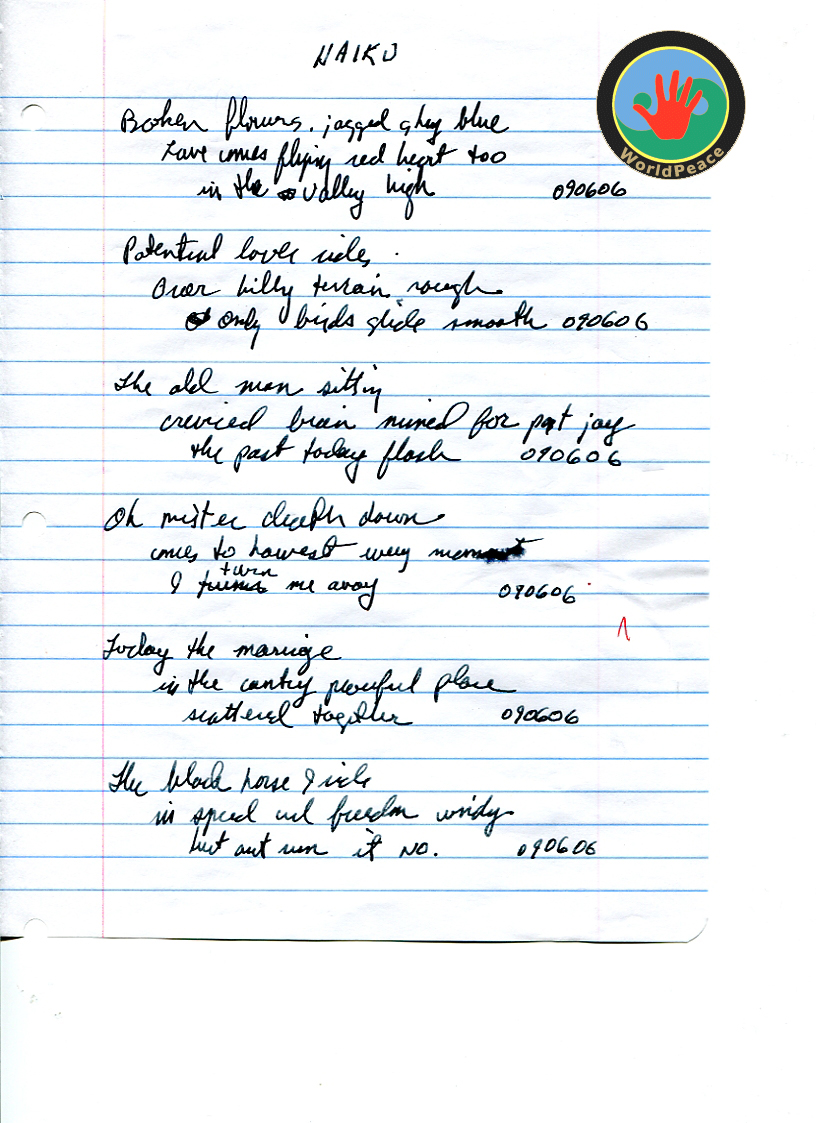 HAIKU
WorldPeace
Broken flowers, jagged grey blue
Love comes flying red heart too
in the valley high 090606
Potential lover rides
Over hilly terrain rough
only birds glide smooth 090606
The old man sitting
creviced brain mined for past joy
the past today flash 090606
Oh mister death down
comes to harvest every moment
I turn me away 090606
1
Today the marrige
in the contry powerful place
scattered together 090606
The black horse I ride
in speed and freedom windy
but out run it NO. 090606